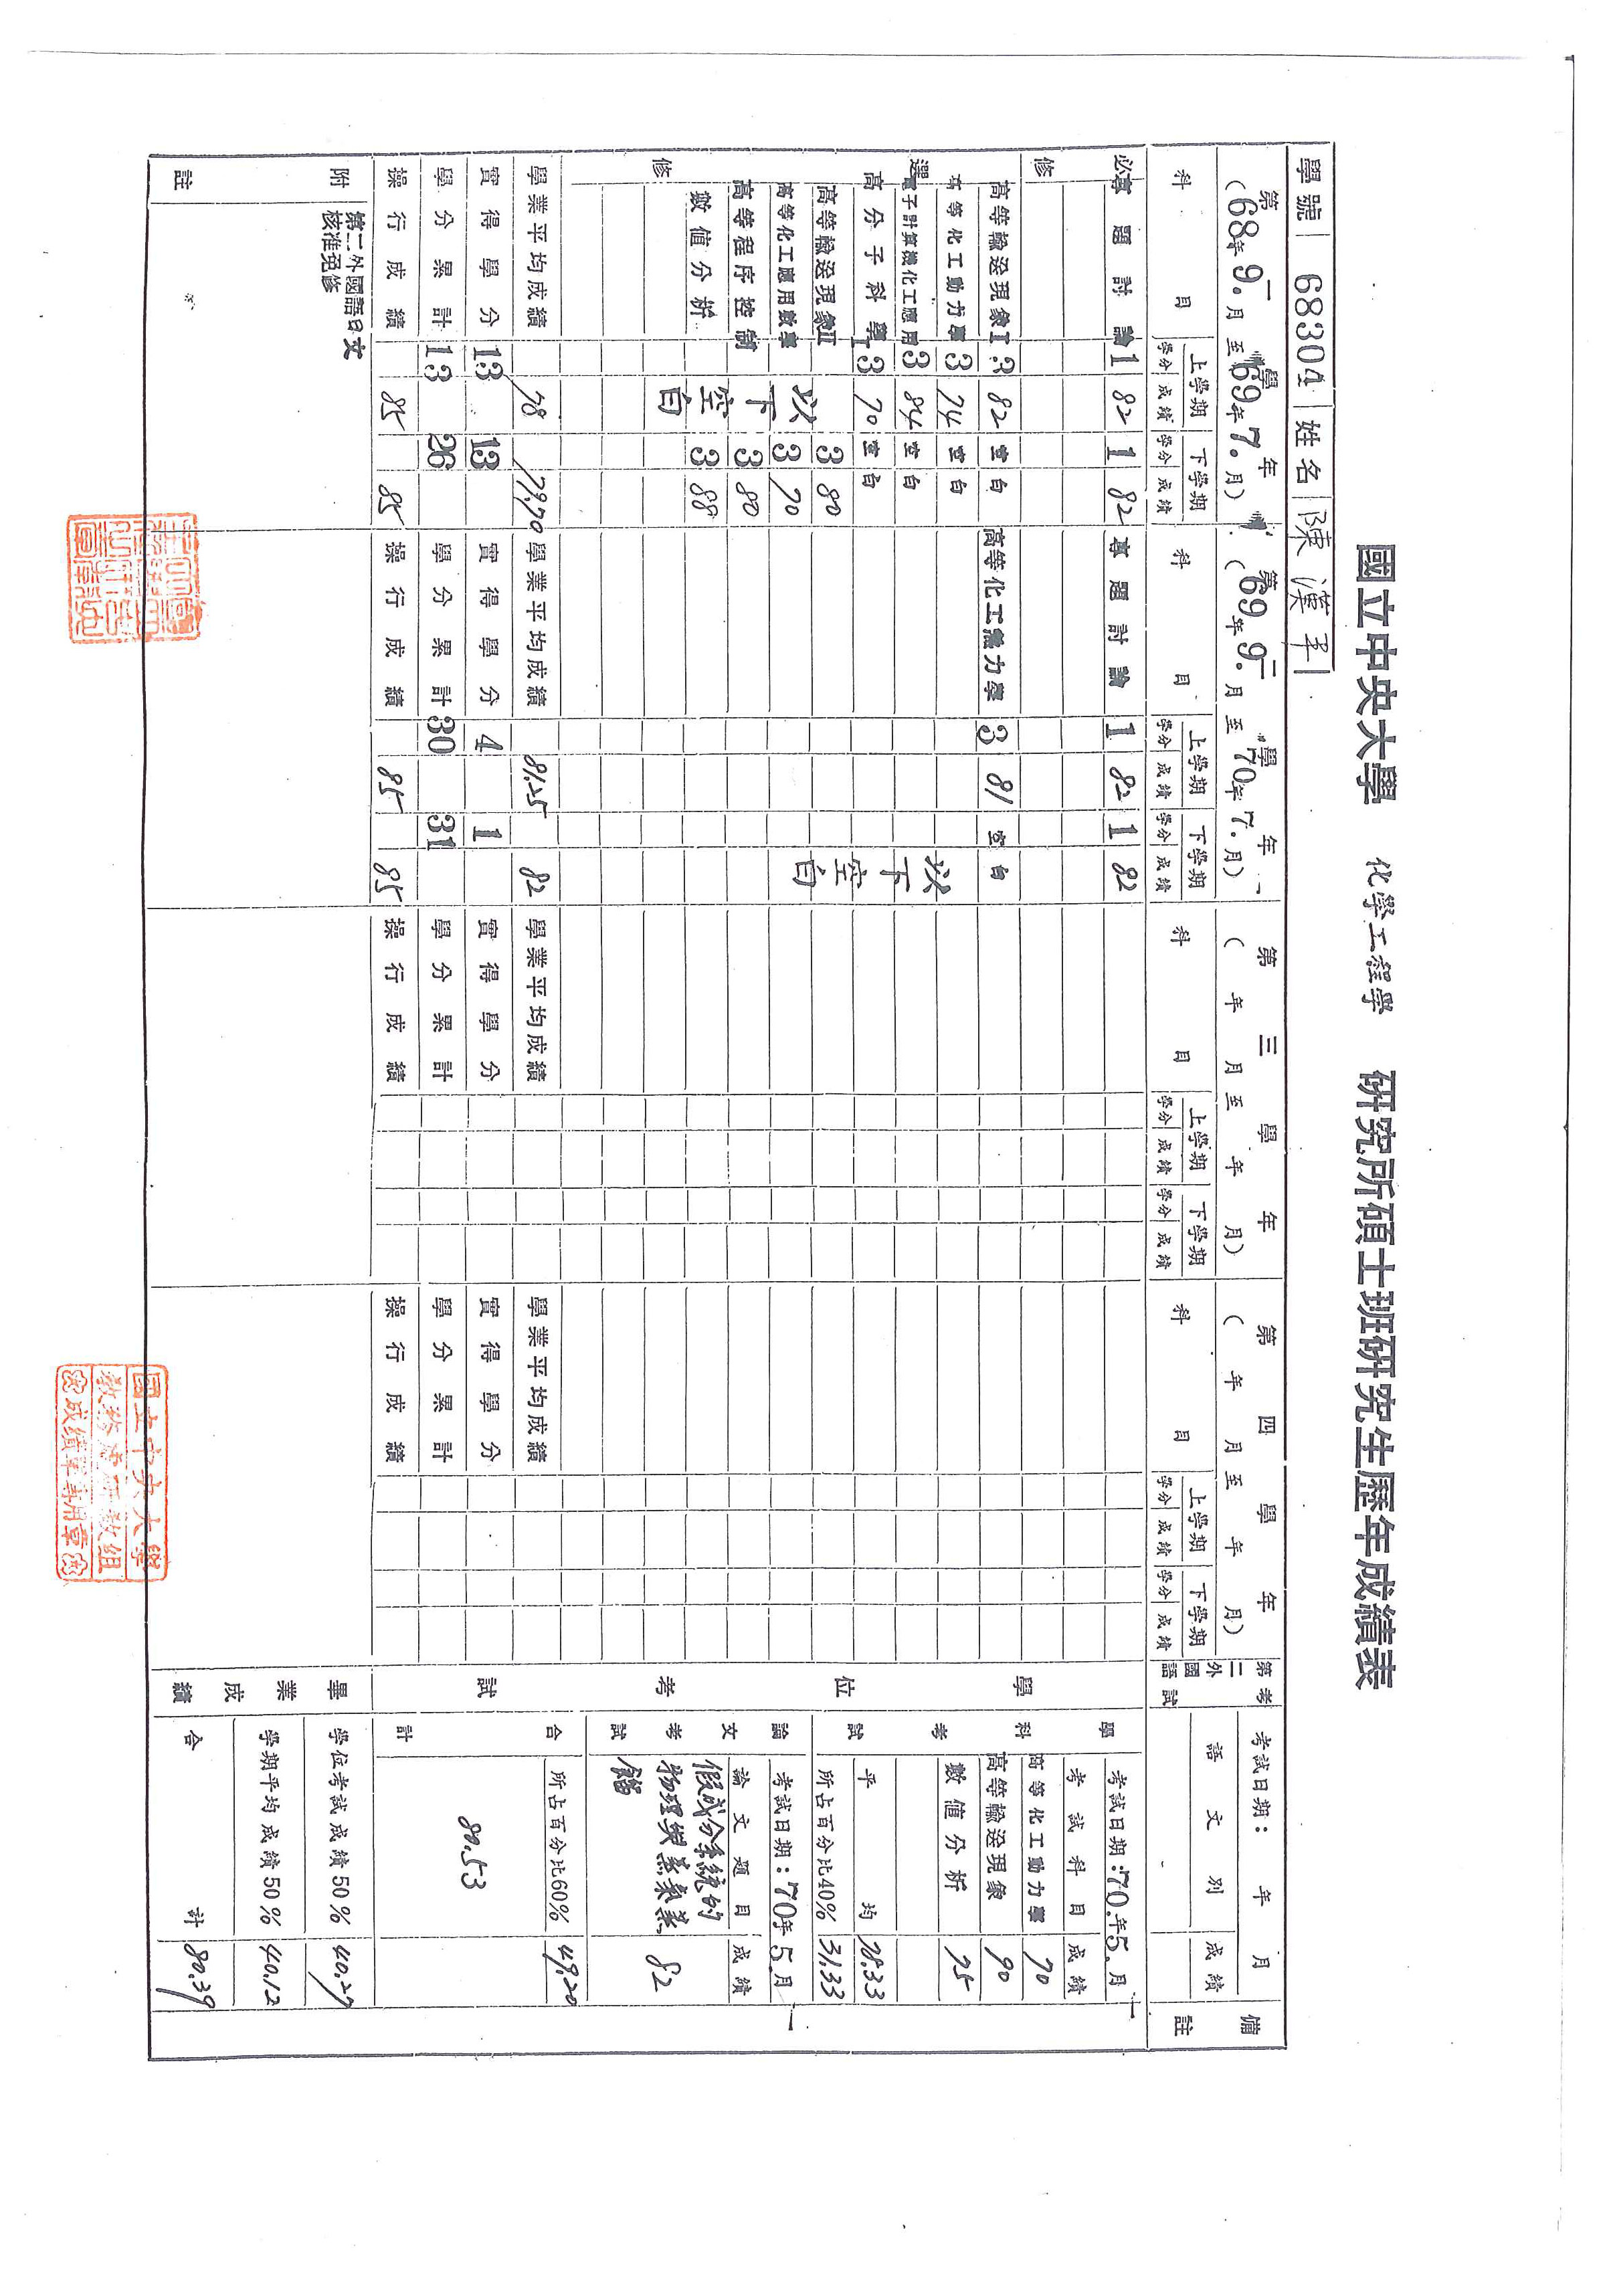 國立中央大學 化學工程學 研究所碩士班研究生歷年成績表
學號 68304 姓名 陳漢
第一學年
(68年9.月至69年7.月)
科目 上學期 下學期
學分 成績 學分 成績
必修
專題討論 1 82 1 82
選修
高等輸送現象I 3 82 空白
高等化工動力學 3 74 空白
電子計算機化工應用 3 84 空白
高分子科學I 3 70 空白
高等輸送現象II 以 3 80
高等化工應用數學 下 3 70
高等程序控制 空 3 80
數值分析 白 3 88
學業平均成績 78 79.70
實得學分 13 13
學分累計 13 26
操行成績 85 85
附註
第二外國語日文
核准免修
第二學年
(69年9.月至70年7.月)
科目 上學期 下學期
學分 成績 學分 成績
專題討論 1 82 1 82
高等化工熱力學 3 81 空白
以下空白
學業平均成績 81.25 82
實得學分 4 1
學分累計 30 31
操行成績 85 85
第三學年
( 年 月至 年 月)
科目 上學期 下學期
學分 成績 學分 成績
學業平均成績
實得學分
學分累計
操行成績
第四學年
( 年 月至 年 月)
科目 上學期 下學期
學分 成績 學分 成績
學業平均成績
實得學分
學分累計
操行成績
第二外國語考試
考試日期: 年 月
語文別 成績
備註
學位考試
學科考試
考試日期:70.年5.月
考試科目 成績
高等化工動力學 70
高等輸送現象 90
數值分析 75
平均 78.33
所占百分比40% 31.33
論文考試
考試日期:70年5.月
論文題目 成績
假成分系統的
物理與蒸氣蒸
餾 82
所占百分比60% 49.20
合計 80.53
畢業成績
學位考試成績50% 40.27
學期平均成績50% 40.12
合計 80.39
國立中央大學
教務處註冊組
成績單專用章